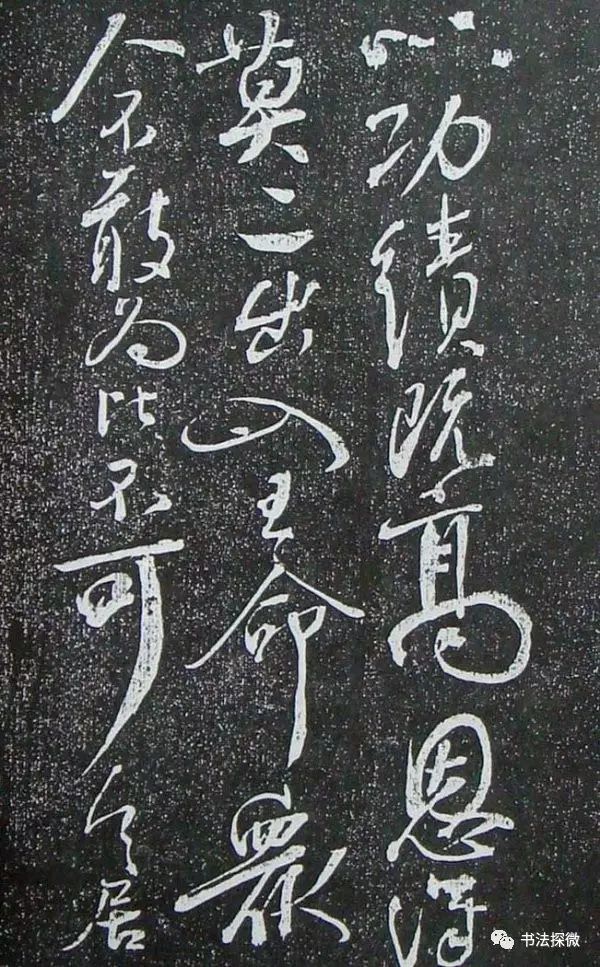 以功績既高恩澤
莫二出入王命眾
人不敢為比不可令居
书法探微